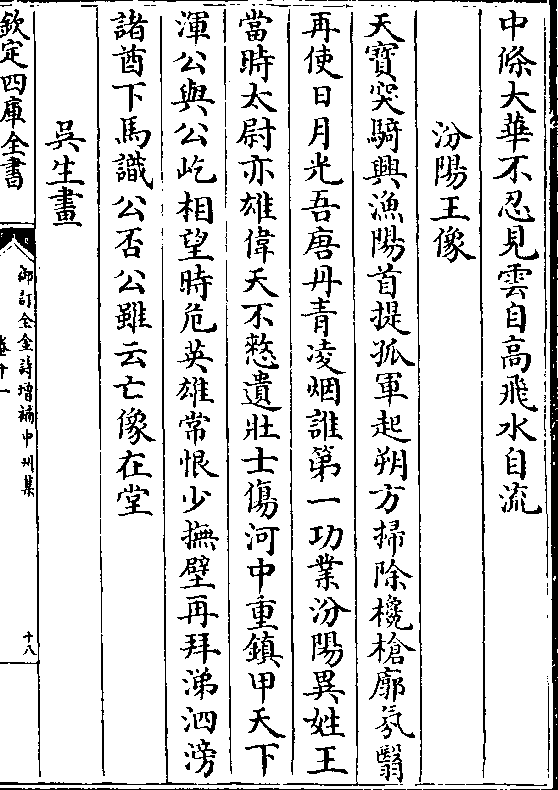 中條大華不忍見雲自高飛水自流
汾陽王像
天寶突騎興漁陽首提孤軍起朔方掃除欃槍廓氛翳
再使日月光吾唐丹青凌烟誰第一功業汾陽異姓王
當時太尉亦雄偉天不憗遺壯士傷河中重鎮甲天下
渾公與公屹相望時危英雄常恨少撫壁再拜涕泗滂
諸酋下馬識公否公雖云亡像在堂
吳生畫
欽定四庫全書
御訂全金詩增補中州集
卷十一
十八